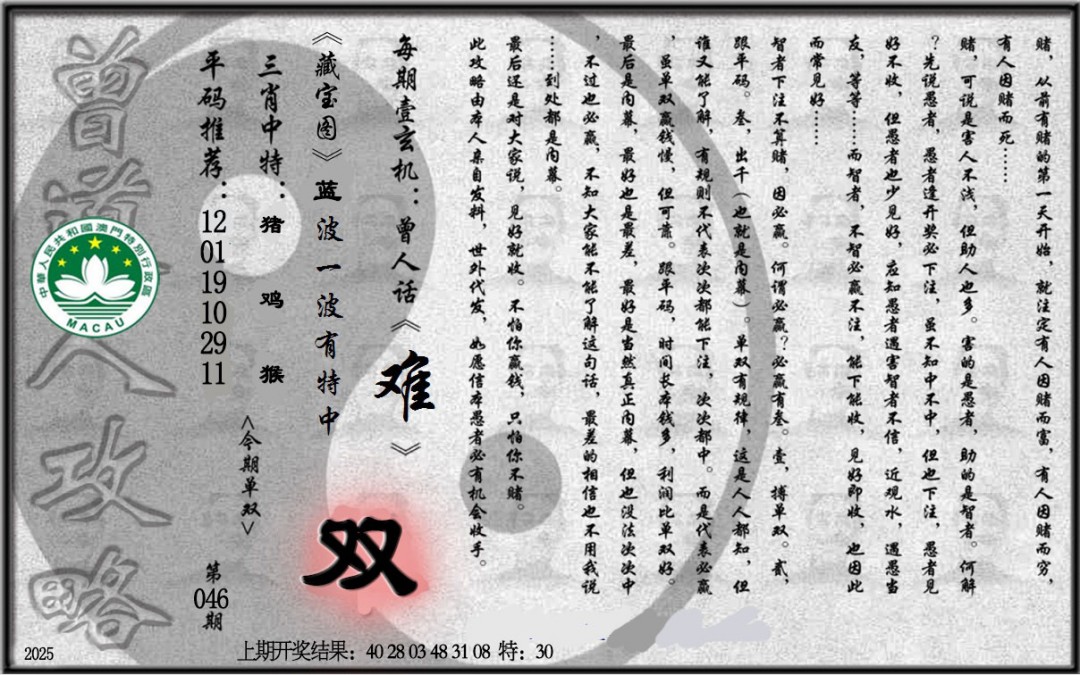 赌，从前有赌的第一天开始，就注定有人因赌而富，有人因赌而穷，
有人因赌而死……
赌，可说是害人不浅，但助人也多。害的是愚者，助的是智者。何解
？先说愚者，愚者逢开奖必下注，虽不知中不中，但也下注，愚者见
好不收，但愚者也少见好，应知愚者遇害智者不信，近观水，遇愚当
友，等等……而智者，不智必赢不注，能下能收，见好即收，也因此
而常见好……
智者下注不算赌，因必赢。何谓必赢？必赢有叁。壹，搏单双。贰，
跟平码。叁，出千（也就是内幕）。单双有规律，这是人人都知，但
谁又能了解，有规则不代表次次都能下注，次次都中。而是代表必赢
，虽单双赢钱慢，但可靠。跟平码，时间长本钱多，利润比单双好。
最后是内幕，最好也是最差，最好是当然真正内幕，但也没法次次中
，不过也必赢，不知大家能不能了解这句话，最差的相信也不用我说
……到处都是内幕。
最后还是对大家说，见好就收。不怕你赢钱，只怕你不赌。
此攻略由本人亲自发料，世外代发，如愿信本愚者必有机会收手。
每期壹玄机：曾人话《难》
《藏宝图》蓝波一波有特中
双
三肖中特：猪 鸡 猴
<今期单双>
平码推荐：12 01 19 10 29 11
第046期
曾道人攻略
中華人民共和國澳門特別行政區
MACAU
2025
上期开奖结果：40 28 03 48 31 08 特：30